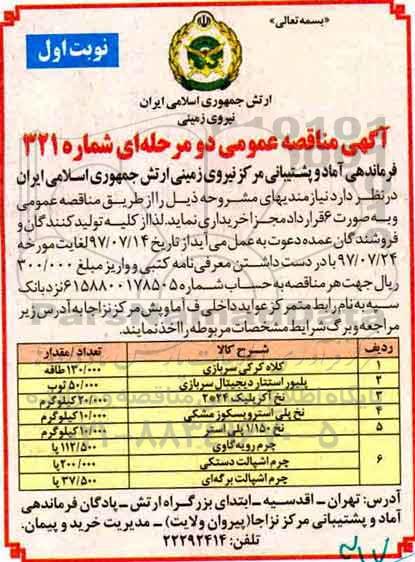 «بسمه تعالی»
نوبت اول
ارتش جمهوری اسلامی ایران
نیروی زمینی
آگهی مناقصه عمومی دو مرحله‌ای شماره ۳۲۱
فرماندهی آماد و پشتیبانی مرکز نیروی زمینی ارتش جمهوری اسلامی ایران
در نظر دارد نیازمندیهای مشروحه ذیل را از طریق مناقصه عمومی
و به صورت ۶ قرارداد مجزا خریداری نماید. لذا از کلیه تولیدکنندگان و
فروشندگان عمده دعوت به عمل می‌آید از تاریخ ۹۷/۰۷/۱۴ لغایت مورخه
۹۷/۰۷/۲۴ با در دست داشتن معرفی‌نامه کتبی و واریز مبلغ ۳۰۰/۰۰۰
ریال جهت هر مناقصه به حساب شماره ۶۱۵۸۸۰۰۱۷۸۵۰۵ نزد بانک
سپه به نام رابط متمرکز عواید داخلی ف آماوپش مرکز نزاجا به آدرس زیر
مراجعه و برگ شرایط مشخصات مربوطه را اخذ نمایند.
ردیف شرح کالا تعداد/مقدار
۱ کلاه کرکی سربازی ۱۳۰/۰۰۰ طاقه
۲ پلیور استتار دیجیتال سربازی ۵۰/۰۰۰ ثوب
۳ نخ آکریلیک ۲۰۲۴ ۲۰/۰۰۰ کیلوگرم
۴ نخ پلی استر ویسکوز مشکی ۱۰/۰۰۰ کیلوگرم
۵ نخ ۱/۱۵۰ پلی استر ۱۰/۰۰۰ کیلوگرم
۶ چرم رویه گاوی ۱۱۲/۵۰۰ پا
چرم اشپالت دستکی ۲۰۰/۰۰۰ پا
چرم اشپالت برگه‌ای ۳۷/۵۰۰ پا
آدرس: تهران - اقدسیه - ابتدای بزرگراه ارتش - پادگان فرماندهی
آماد و پشتیبانی مرکز نزاجا (پیروان ولایت) - مدیریت خرید و پیمان.
تلفن: ۲۲۲۹۲۴۱۴